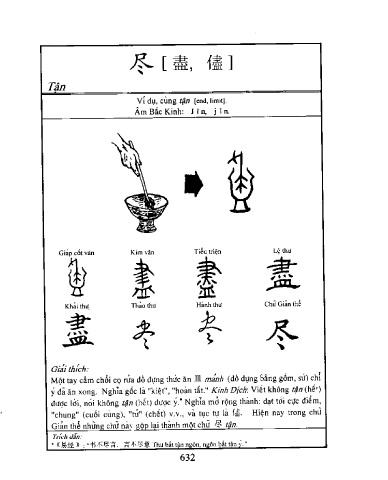 尽 [ 盡, 儘 ]
Tận
Ví dụ, cùng tận [end, limit].
Âm Bắc Kinh: Jǐn, jìn.
Giáp cốt văn Kim văn Tiểu triện Lệ thư
盡
Khải thư Thảo thư Hành thư Chữ Giản thể
盡 尽 尽 尽
Giải thích:
Một tay cầm chổi cọ rửa đồ dựng thức ăn 皿 mãnh (đồ dựng bằng gốm, sứ) chỉ
ý đã ăn xong. Nghĩa gốc là "kiệt", "hoàn tất." Kinh Dịch: Viết không tận (hết)
được lời, nói không tận (hết) được ý." Nghĩa mở rộng thành: đạt tới cực điểm,
"chung" (cuối cùng), "tử" (chết) v.v., và tục tự là 儘. Hiện nay trong chữ
Giản thể những chữ này gộp lại thành một chữ 尽 tận.
Trích dẫn:
*《易经》: "书不尽言, 言不尽意 Thư bất tận ngôn, ngôn bất tận ý."
632